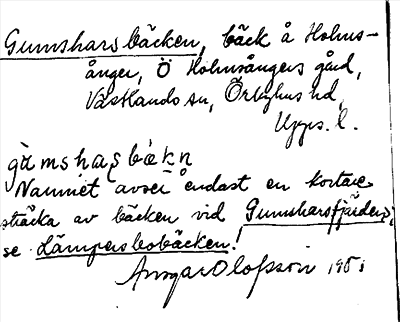 Gumsharsbäcken, bäck å Holms-
ånger, Ö Holmsångers gård,
Västlands sn, Örbyhus hd,
Upps. l.
gùmshaʂbækn
Namnet avser endast en kortare
sträcka av bäcken vid Gumsharsfjärden,
se Lämpersbobäcken!
Ansgar Olofsson 195